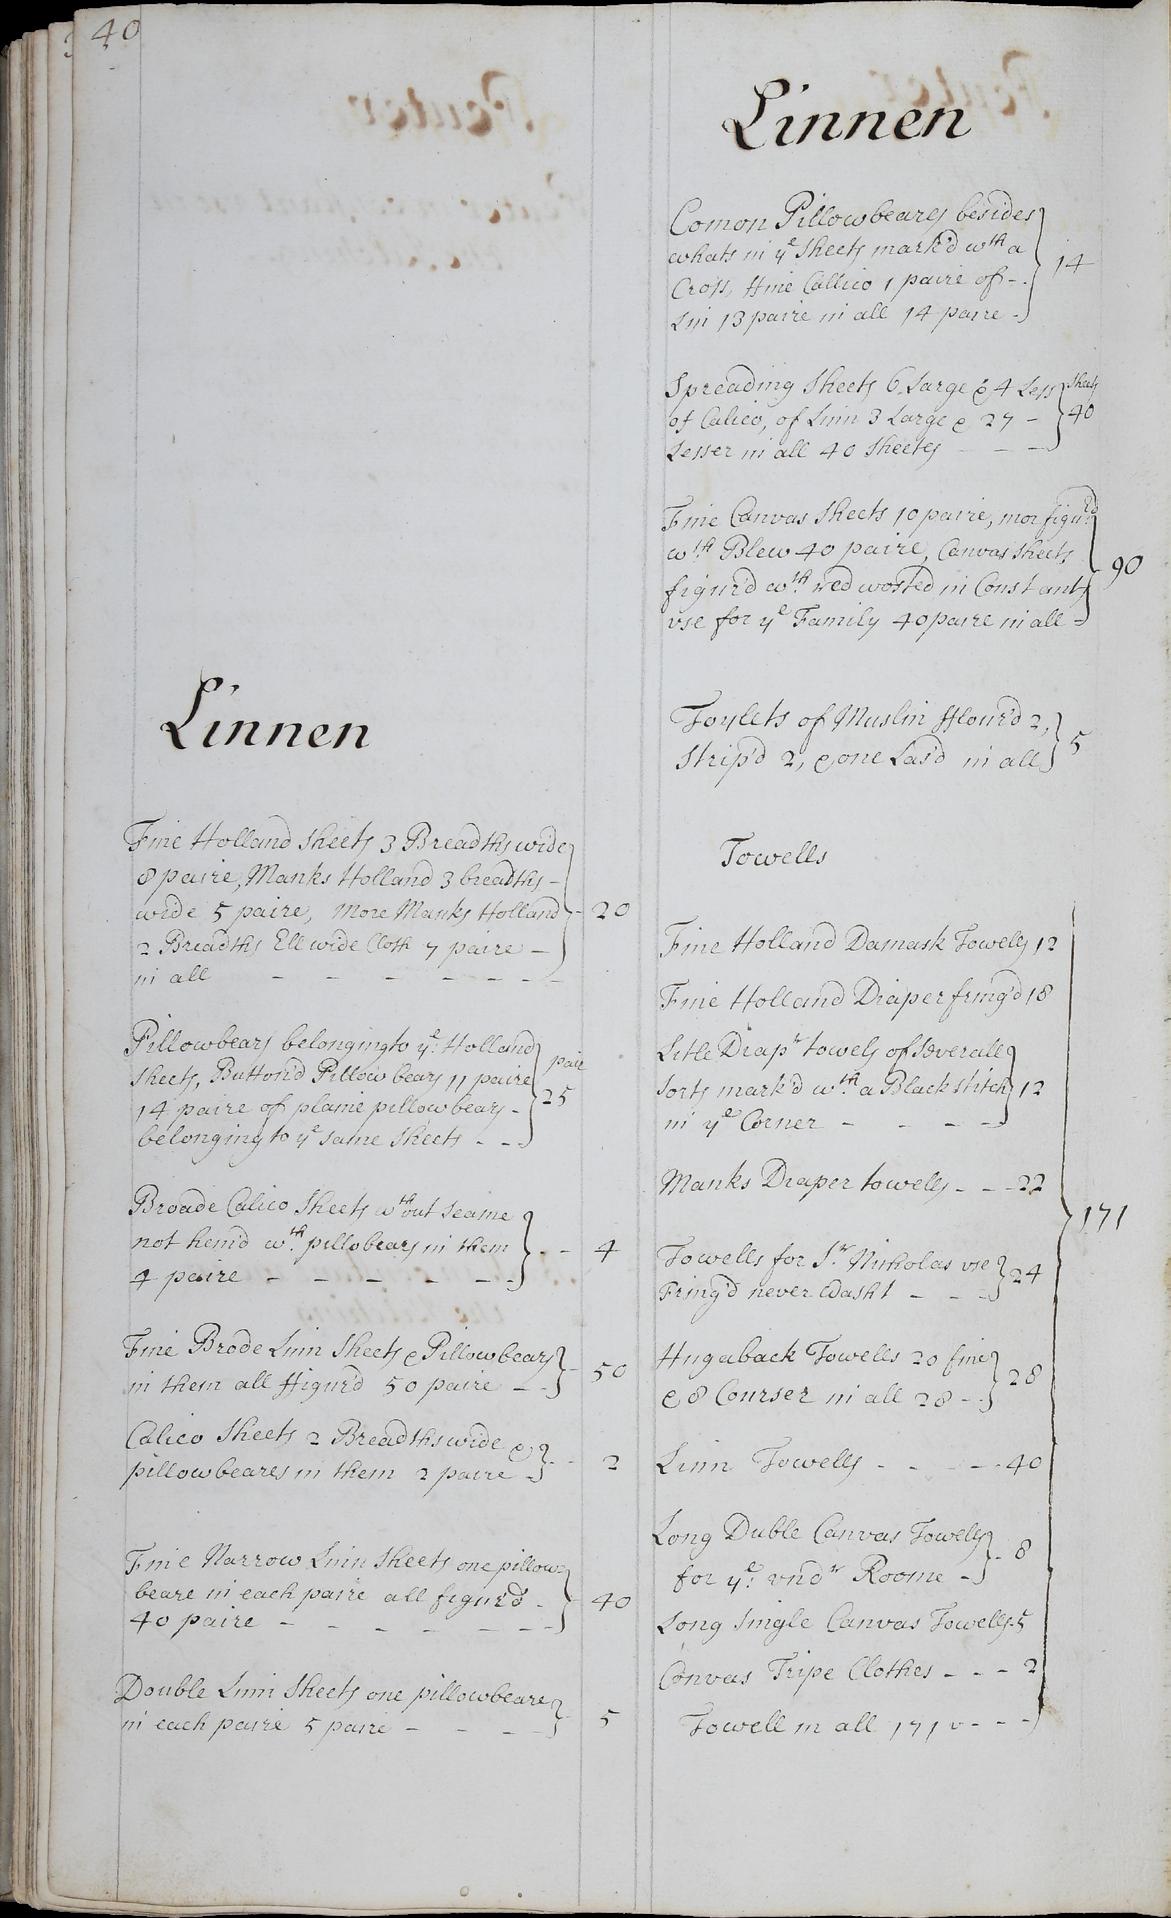 40
Linnen
Fine Holland Sheets 3 Breadths wide
8 paire, Manks Holland 3 breadths -
wide 5 paire, More Manks Holland - 20
2 Breadths Ell wide Cloth 7 paire -
in all - - - - - - -
Pillowbears belonging to ye Holland
Sheets, Button'd Pillow bears 11 paire pair
14 paire of plaine pillow bears - 25
belonging to ye same Sheets - - -
Broade Calico Sheets wthout seame
not hem'd wth pillobears in them - - 4
4 paire - - - - - -
Fine Brode Linn Sheets & Pillowbears
in them all ffigur'd 50 paire - - 50
Calico Sheets 2 Breadths wide &
pillowbeares in them 2 paire - - 2
Fine Narrow Linn Sheets one pillow
beare in each paire all figur'd - 40
40 paire - - - - - - -
Double Linn Sheets one pillowbeare
in each paire 5 paire - - - - 5
Linnen
Comon Pillowbears besides
whats in ye Sheets mark'd wth a 14
Cross, ffine Callico 1 paire of - -
Lin 13 paire in all 14 paire -
Spreading Sheets 6 Large & 4 Less Sheets
of Calico, of Linn 3 Large & 27 - 40
Lesser in all 40 Sheetes - - -
Fine Canvas Sheets 10 paire, mor figur'd
wth Blew 40 paire, Canvas Sheets 90
figur'd wth red wosted in Constant
vse for ye Family 40 paire in all -
Toylets of Muslin fflour'd 2,
Strip'd 2, & one Las'd in all 5
Towells
Fine Holland Damask Towels 12
Fine Holland Diaper fring'd 18
Litle Diapr towels of Severall
Sorts mark'd wth a Black stitch 12
in ye Corner - - - -
Manks Diaper towells - - - 22
171
Towells for Sr Nicholas vse
Fring'd never Washt - - - 24
Hugaback Towells 20 fine
& 8 Courser in all 28 - - 28
Linn Towells - - - - 40
Long Duble Canvas Towells
for ye vndr Roome - - 8
Long Single Canvas Towells - 5
Canvas Tripe Clothes - - - 2
Towell in all 171 - - -